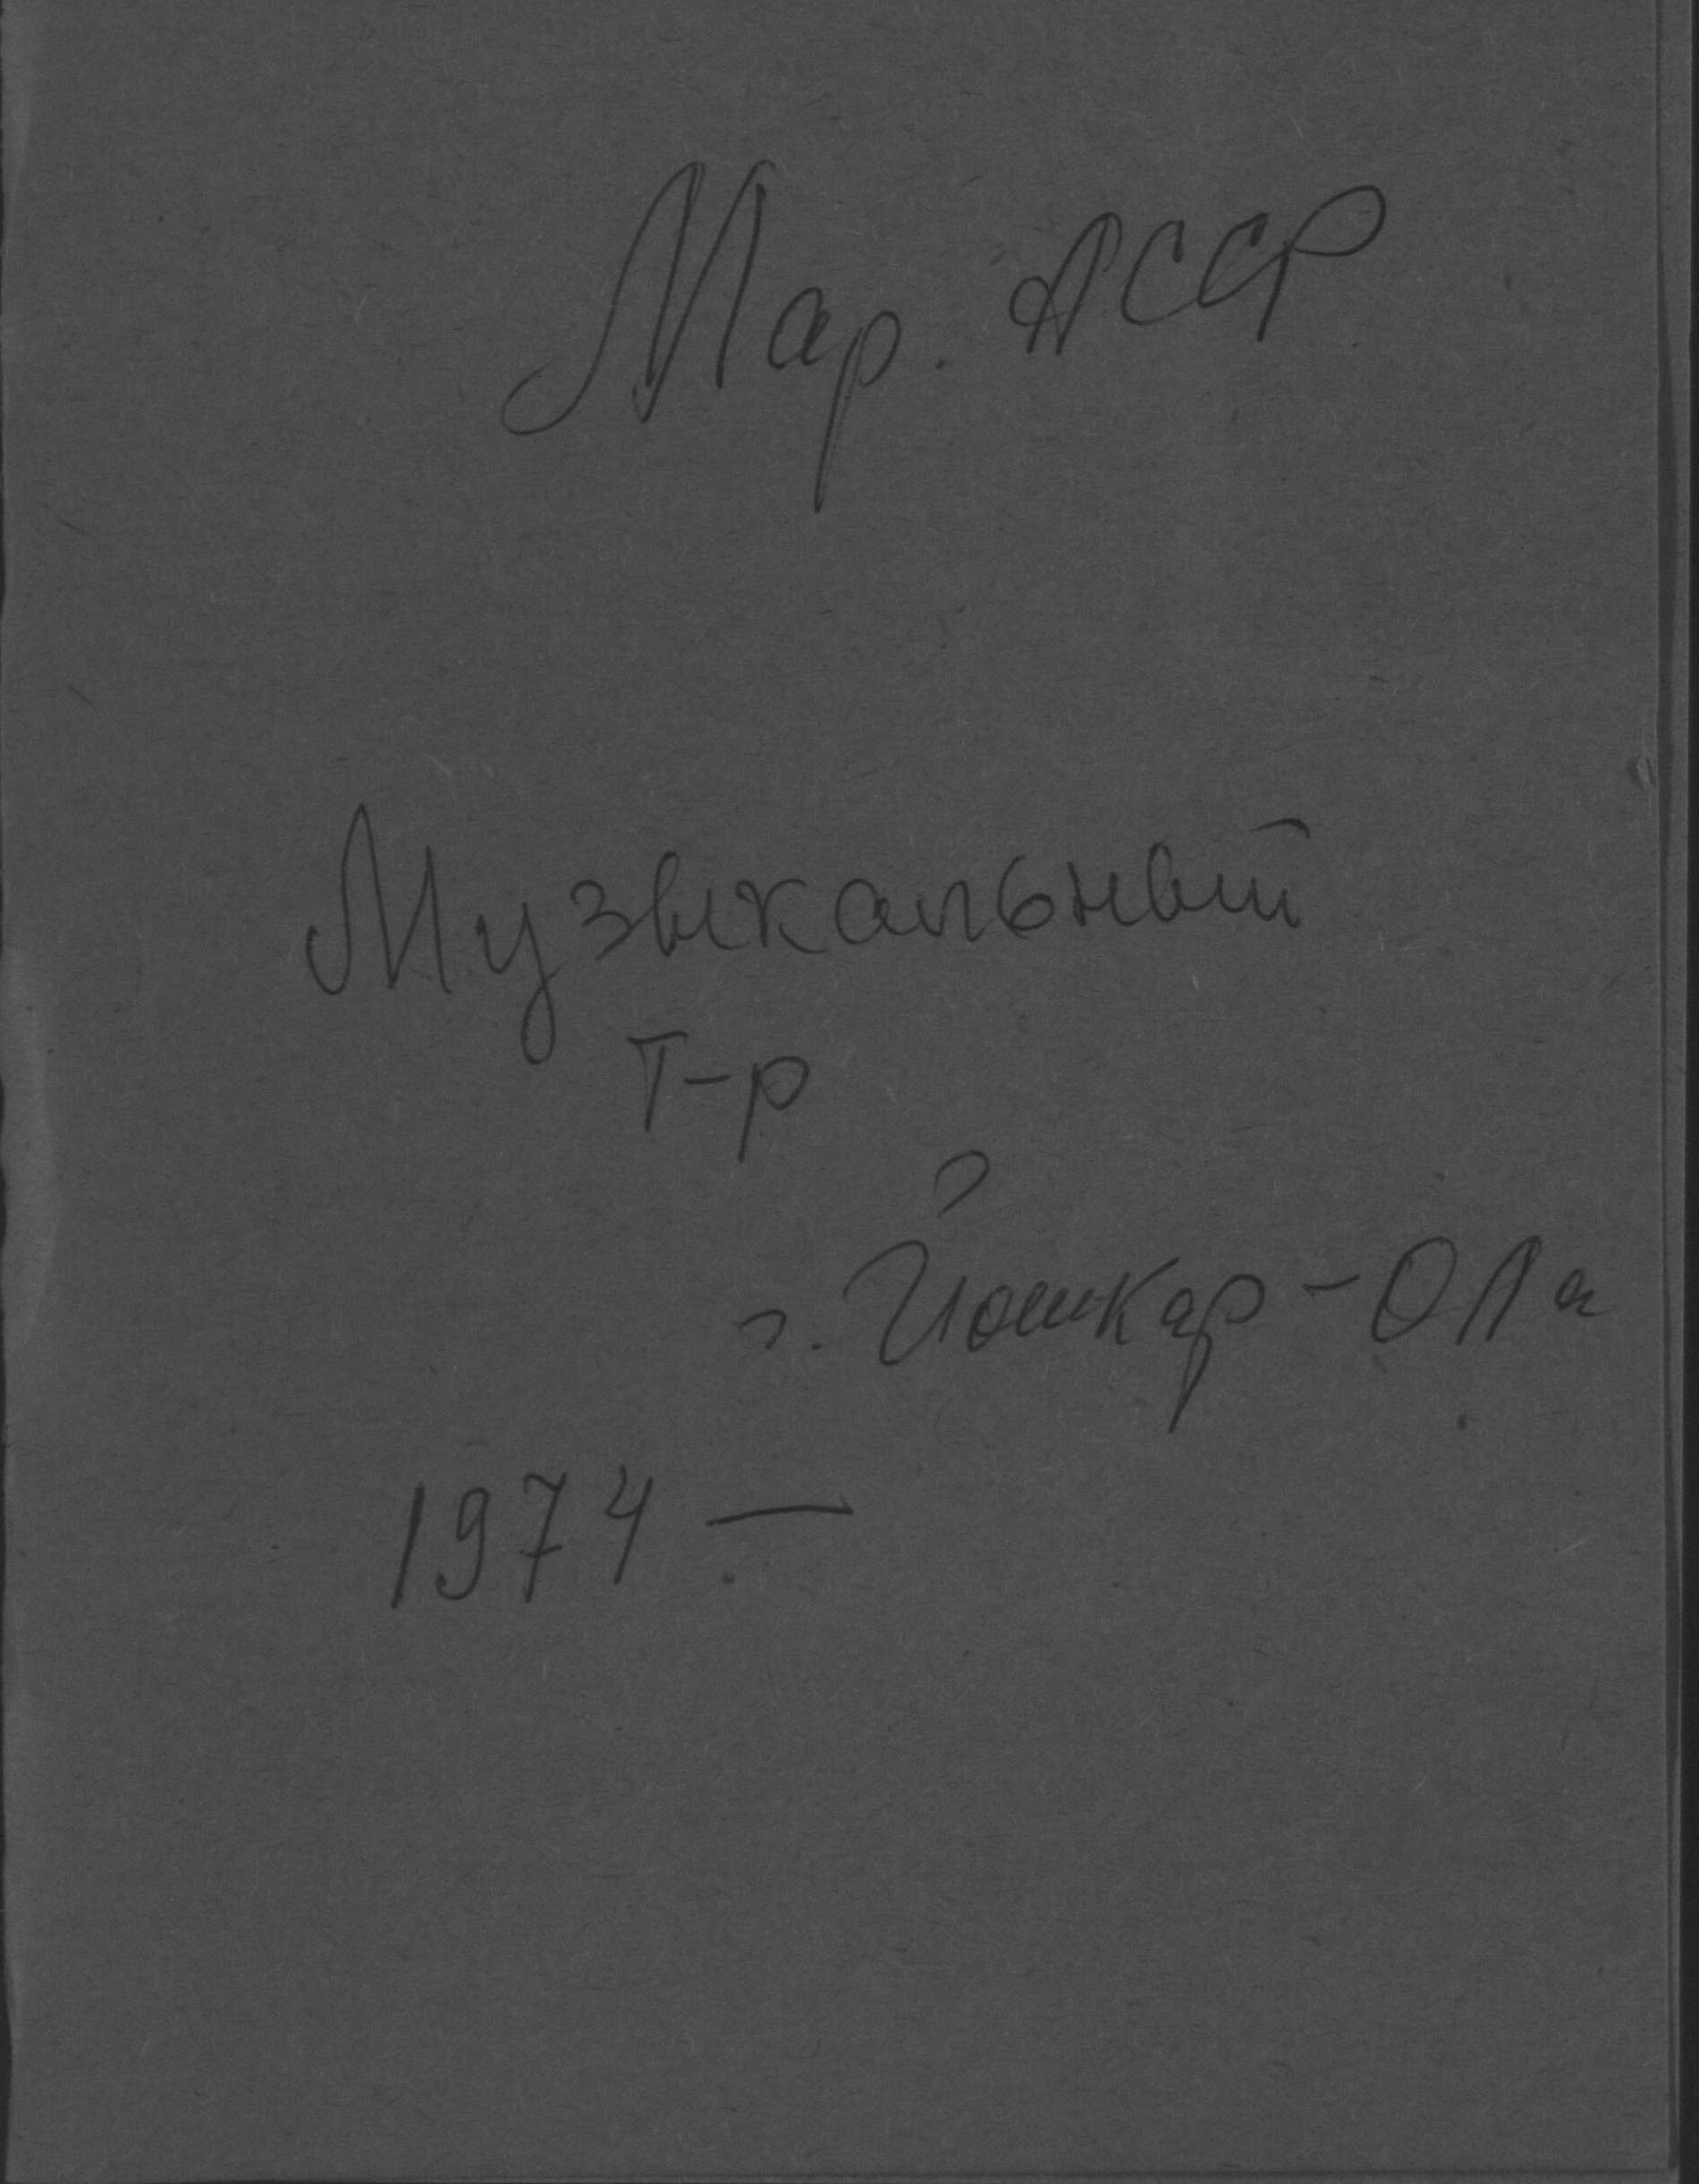 Мар. АССР
Музыкальный
Т-р
г. Йошкар-Ола
1974 —